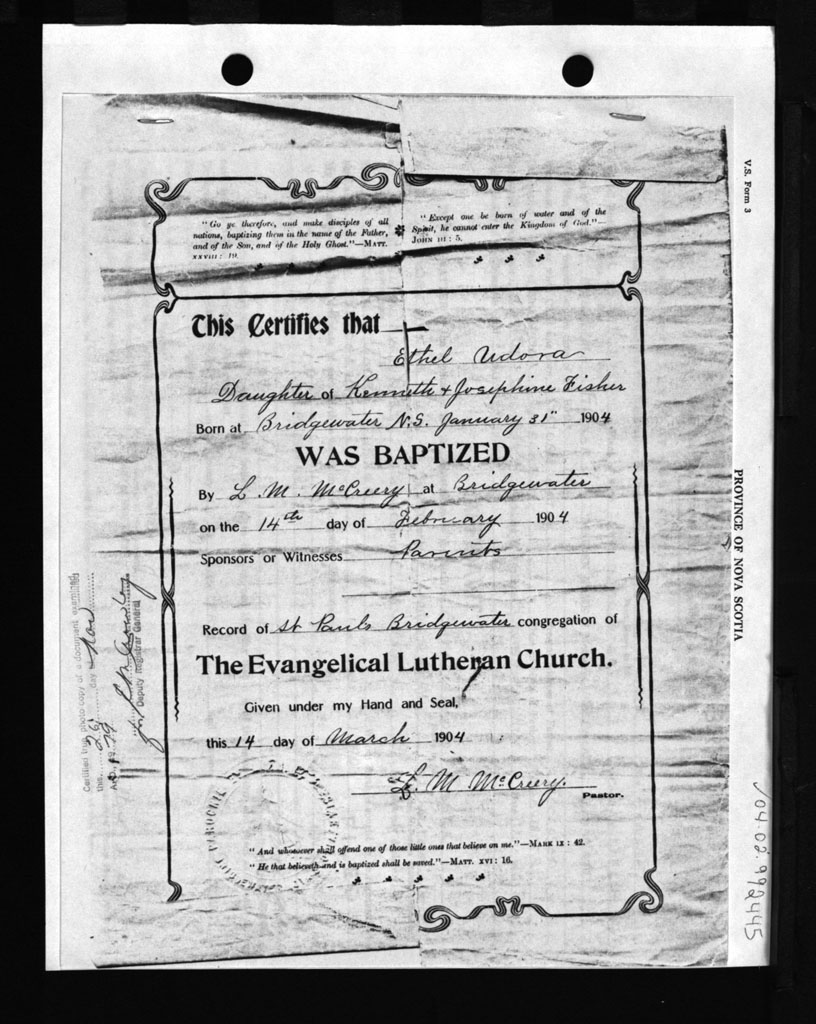 "Go ye therefore, and make disciples of all
nations, baptizing them in the name of the Father,
and of the Son, and of the Holy Ghost."—MATT.
XXVIII: 19.
"Except one be born of water and of the
Spirit, he cannot enter the Kingdom of God."—
JOHN III: 5.
This Certifies that
Ethel Udora
Daughter of Kenneth & Josephine Fisher
Born at Bridgewater N.S. January 31" 1904
WAS BAPTIZED
By L. M. McCreery at Bridgewater
on the 14th day of February 1904
Sponsors or Witnesses Parents
Record of St Pauls Bridgewater congregation of
The Evangelical Lutheran Church.
Given under my Hand and Seal,
this 14 day of March 1904
L. M McCreery.
Pastor.
"And whosoever shall offend one of those little ones that believe on me."—MARK IX: 42.
"He that believeth and is baptized shall be saved."—MATT. XVI: 16.
Certified true photo copy of a document examined
this 26 day Nov
A.D. 1979
Deputy Registrar General
V.S. Form 3
PROVINCE OF NOVA SCOTIA
04-02-992445